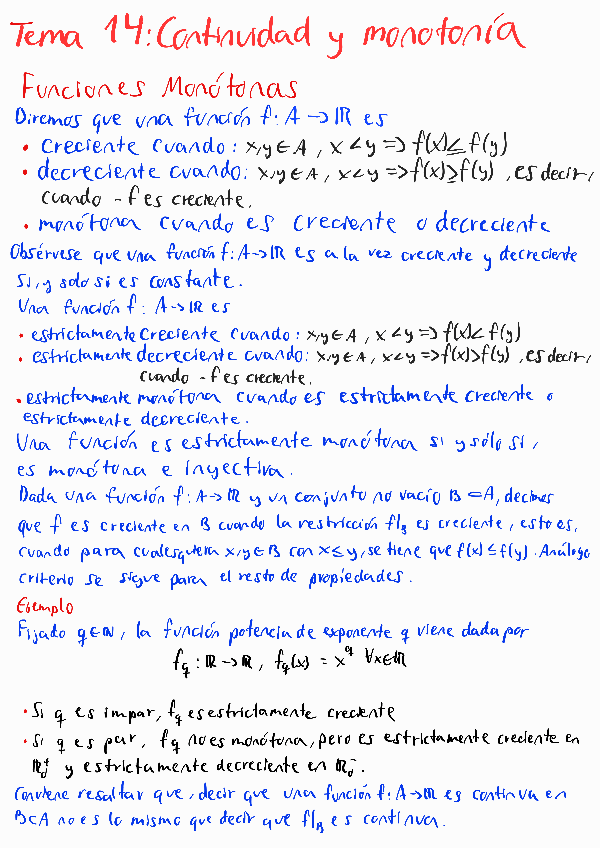 Tema 14: Continuidad y monotonía
Funciones Monótonas
Diremos que una función f: A → ℝ es
• creciente cuando: x,y ∈ A, x < y => f(x) ≤ f(y)
• decreciente cuando: x,y ∈ A, x < y => f(x) ≥ f(y), es decir,
cuando -f es creciente.
• monótona cuando es creciente o decreciente
Obsérvese que una función f: A → ℝ es a la vez creciente y decreciente
si, y solo si es constante.
Una función f: A → ℝ es
• estrictamente creciente cuando: x,y ∈ A, x < y => f(x) < f(y)
• estrictamente decreciente cuando: x,y ∈ A, x < y => f(x) > f(y), es decir,
cuando -f es creciente.
• estrictamente monótona cuando es estrictamente creciente o
estrictamente decreciente.
Una función es estrictamente monótona si y sólo si,
es monótona e inyectiva.
Dada una función f: A → ℝ y un conjunto no vacío B ⊂ A, decimos
que f es creciente en B cuando la restricción f|_B es creciente, esto es,
cuando para cualesquiera x,y ∈ B con x ≤ y, se tiene que f(x) ≤ f(y). Análogo
criterio se sigue para el resto de propiedades.
Ejemplo
Fijado q ∈ ℕ, la función potencia de exponente q viene dada por
f_q: ℝ → ℝ, f_q(x) = x^q ∀x ∈ ℝ
• Si q es impar, f_q es estrictamente creciente
• Si q es par, f_q no es monótona, pero es estrictamente creciente en
ℝ₀⁺ y estrictamente decreciente en ℝ₀⁻.
Conviene resaltar que, decir que una función f: A → ℝ es continua en
B ⊂ A no es lo mismo que decir que f|_B es continua.